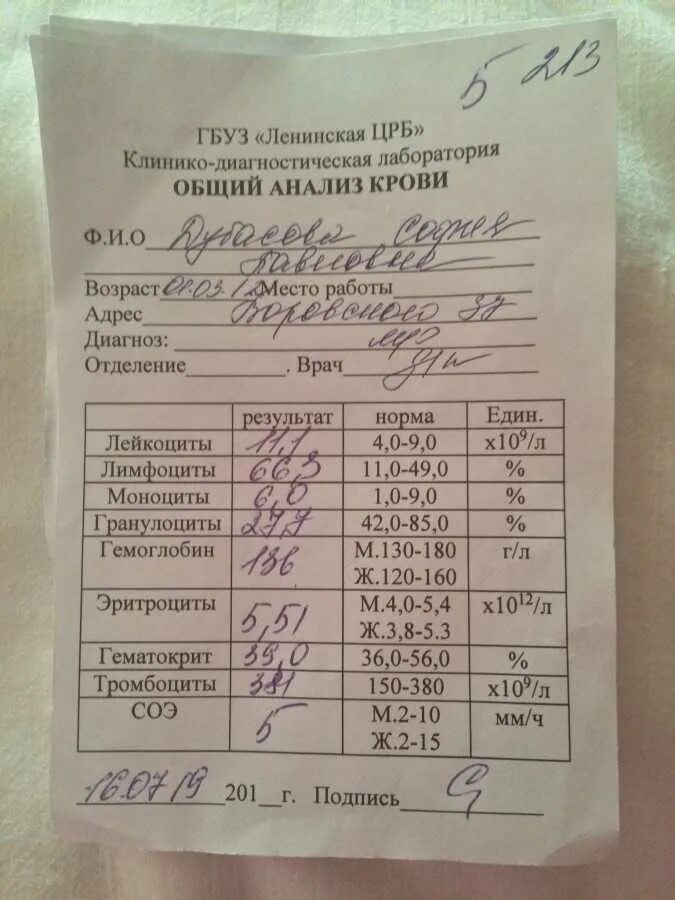 5 213
ГБУЗ «Ленинская ЦРБ»
Клинико-диагностическая лаборатория
ОБЩИЙ АНАЛИЗ КРОВИ
Ф.И.О Дубасова София
Павловна
Возраст 01.03. Место работы
Адрес Воровского 37
Диагноз:
Отделение . Врач
результат норма Един.
Лейкоциты 11,1 4,0-9,0 х10⁹/л
Лимфоциты 66,3 11,0-49,0 %
Моноциты 6,0 1,0-9,0 %
Гранулоциты 27,7 42,0-85,0 %
Гемоглобин 136 М.130-180 г/л
Ж.120-160
Эритроциты 5,51 М.4,0-5,4 х10¹²/л
Ж.3,8-5.3
Гематокрит 39,0 36,0-56,0 %
Тромбоциты 381 150-380 х10⁹/л
СОЭ 5 М.2-10 мм/ч
Ж.2-15
16.07.19 201__г. Подпись